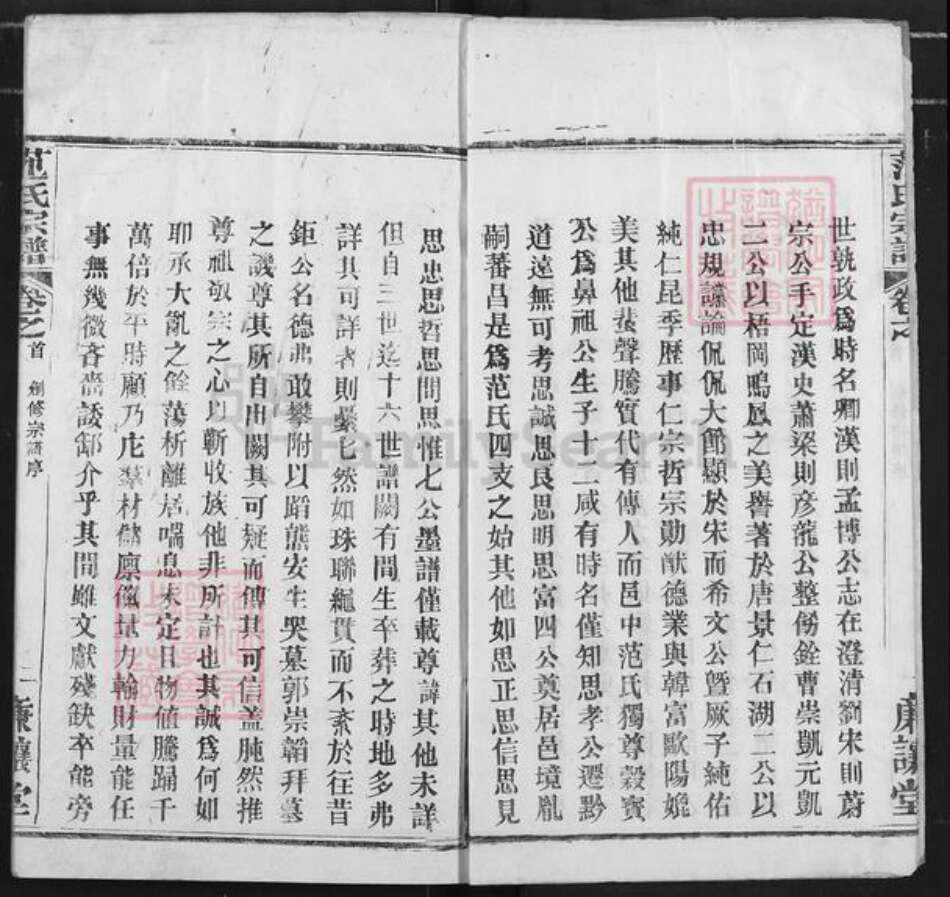 范氏宗譜 卷之
世執政爲時名卿漢則孟博公志在澄清劉宋則蔚
宗公手定漢史蕭梁則彦龍公整飭銓曹崇凱元凱
二公以梧岡鳴鳳之美譽著於唐景仁石湖二公以
忠規讜論侃侃大節顯於宋而希文公曁厥子純佑
純仁昆季歷事仁宗哲宗勛猷德業與韓富歐陽媲
美其他蜚聲騰實代有傳人而邑中范氏獨尊穀賓
公爲鼻祖公生子十二咸有時名僅知思孝公遷黔
道遠無可考思誠思良思明思富四公奠居邑境胤
嗣蕃昌是爲范氏四支之始其他如思正思信思見
廉讓堂
思忠思哲思問思惟七公墨譜僅載尊諱其他未詳
但自三世迄十六世譜闕有間生卒葬之時地多弗
詳其可詳者則纍七然如珠聯繩貫而不紊於往昔
鉅公名德弗敢攀附以蹈熊安生哭墓郭崇韜拜墓
之譏尊其所自出闕其可疑而傳其可信蓋肫然推
尊祖敬宗之心以蘄收族他非所計也其誠爲何如
耶承大亂之餘蕩析離居喘息未定且物値騰踊千
萬倍於平時顧乃庀羣材儲廩儀量力輸財量能任
事無幾微吝嗇諉卸介乎其間雖文獻殘缺卒能旁
范氏宗譜 卷之首 創修宗譜序 二 廉讓堂
FamilySearch